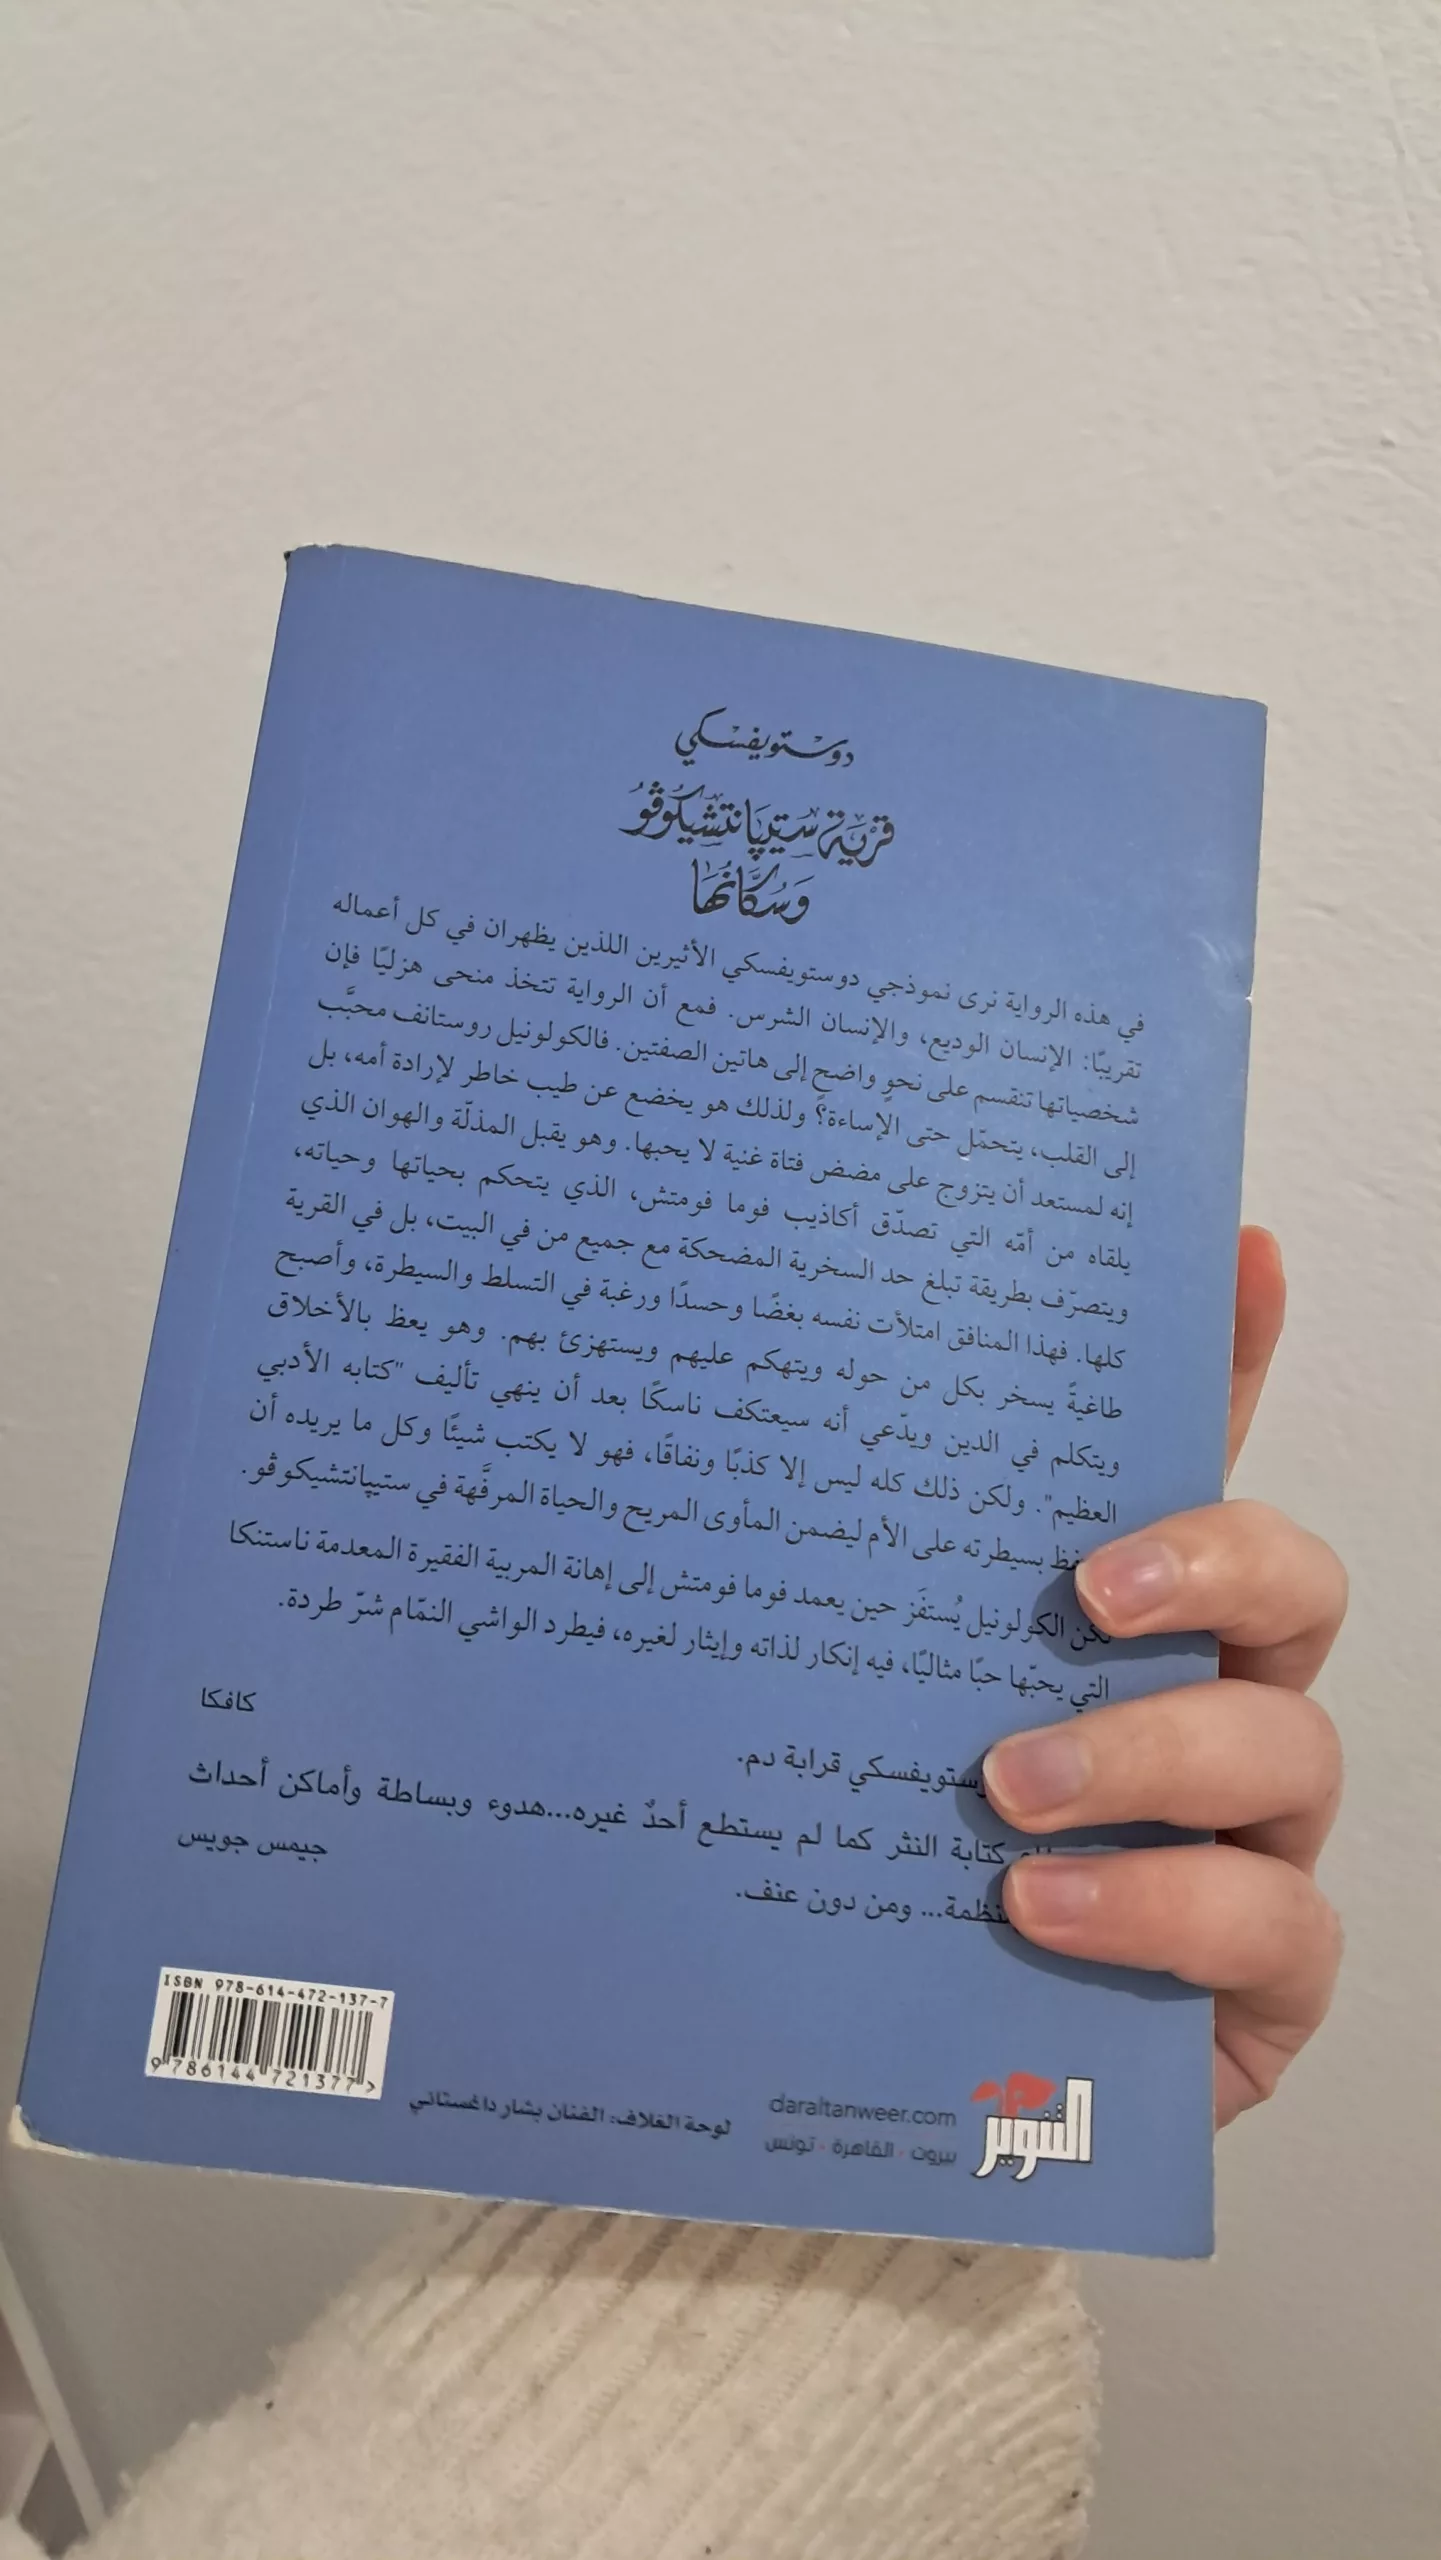 دوستويفسكي
قرية ستيپانتشيكوڤو
وسكانها
في هذه الرواية نرى نموذجي دوستويفسكي الأثيرين اللذين يظهران في كل أعماله
تقريبًا: الإنسان الوديع، والإنسان الشرس. فمع أن الرواية تتخذ منحى هزليًا فإن
شخصياتها تنقسم على نحوٍ واضح إلى هاتين الصفتين. فالكولونيل روستانف محبَّب
إلى القلب، يتحمّل حتى الإساءة؟ ولذلك هو يخضع عن طيب خاطر لإرادة أمه، بل
إنه لمستعد أن يتزوج على مضض فتاة غنية لا يحبها. وهو يقبل المذلّة والهوان الذي
يلقاه من أمّه التي تصدّق أكاذيب فوما فومتش، الذي يتحكم بحياتها وحياته،
ويتصرّف بطريقة تبلغ حد السخرية المضحكة مع جميع من في البيت، بل في القرية
كلها. فهذا المنافق امتلأت نفسه بغضًا وحسدًا ورغبة في التسلط والسيطرة، وأصبح
طاغيةً يسخر بكل من حوله ويتهكم عليهم ويستهزئ بهم. وهو يعظ بالأخلاق
ويتكلم في الدين ويدّعي أنه سيعتكف ناسكًا بعد أن ينهي تأليف "كتابه الأدبي
العظيم". ولكن ذلك كله ليس إلا كذبًا ونفاقًا، فهو لا يكتب شيئًا وكل ما يريده أن
بسيطرته على الأم ليضمن المأوى المريح والحياة المرفَّهة في ستيپانتشيكوڤو.
لكن الكولونيل يُستفَز حين يعمد فوما فومتش إلى إهانة المربية الفقيرة المعدمة ناستنكا
التي يحبّها حبًا مثاليًا، فيه إنكار لذاته وإيثار لغيره، فيطرد الواشي النمّام شرّ طردة.
كافكا
قرابة دم.
كتابة النثر كما لم يستطع أحدٌ غيره...هدوء وبساطة وأماكن أحداث
جيمس جويس
... ومن دون عنف.
ISBN 978-614-472-137-7
9 786144 721377 >
لوحة الغلاف: الفنان بشار داغستاني
daraltanweer.com
بيروت • القاهرة • تونس
التنوير